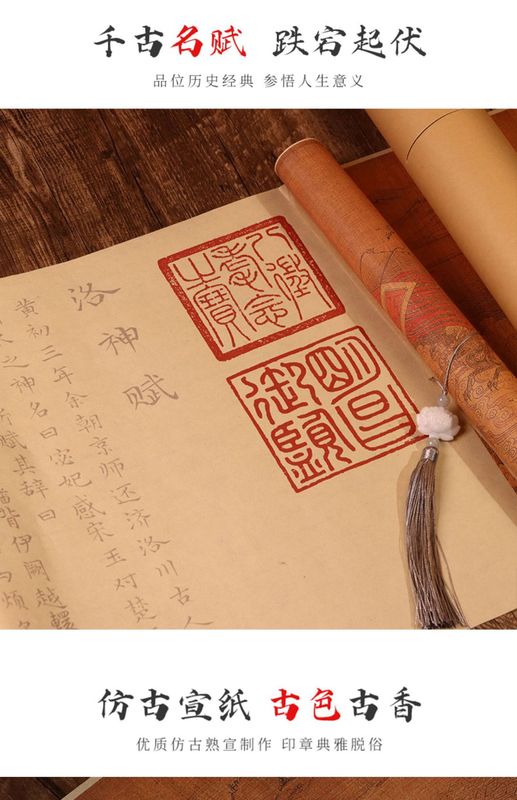 千古名赋 跌宕起伏
品位历史经典 参悟人生意义
八徵耄念之寶
明昌御覽
洛神赋
黄初三年余朝京师还济洛川古人
之神名曰宓妃感宋玉对楚
所赋其辞曰
背伊阙越轘
烦
仿古宣纸 古色古香
优质仿古熟宣制作 印章典雅脱俗